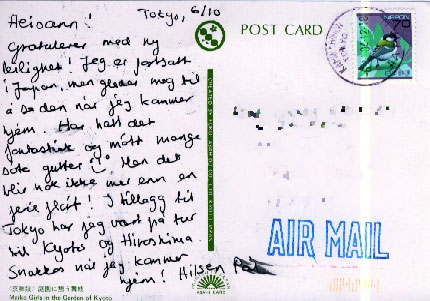 Tokyo, 6/10
Heisann!
Gratulerer med ny
leilighet! Jeg er fortsatt
i Japan, men gleder meg til
å se den når jeg kommer
hjem. Har hatt det
fantastisk og møtt mange
søte gutter! Men det
blir nok ikke mer enn en
ferie flørt! I tillegg til
Tokyo har jeg vært på tur
til Kyoto og Hiroshima
Snakkes når jeg kommer
hjem! Hilsen
POST CARD
NIPPON
AIR MAIL
Maiko Girls in the Garden of Kyoto
ASAHI CARD